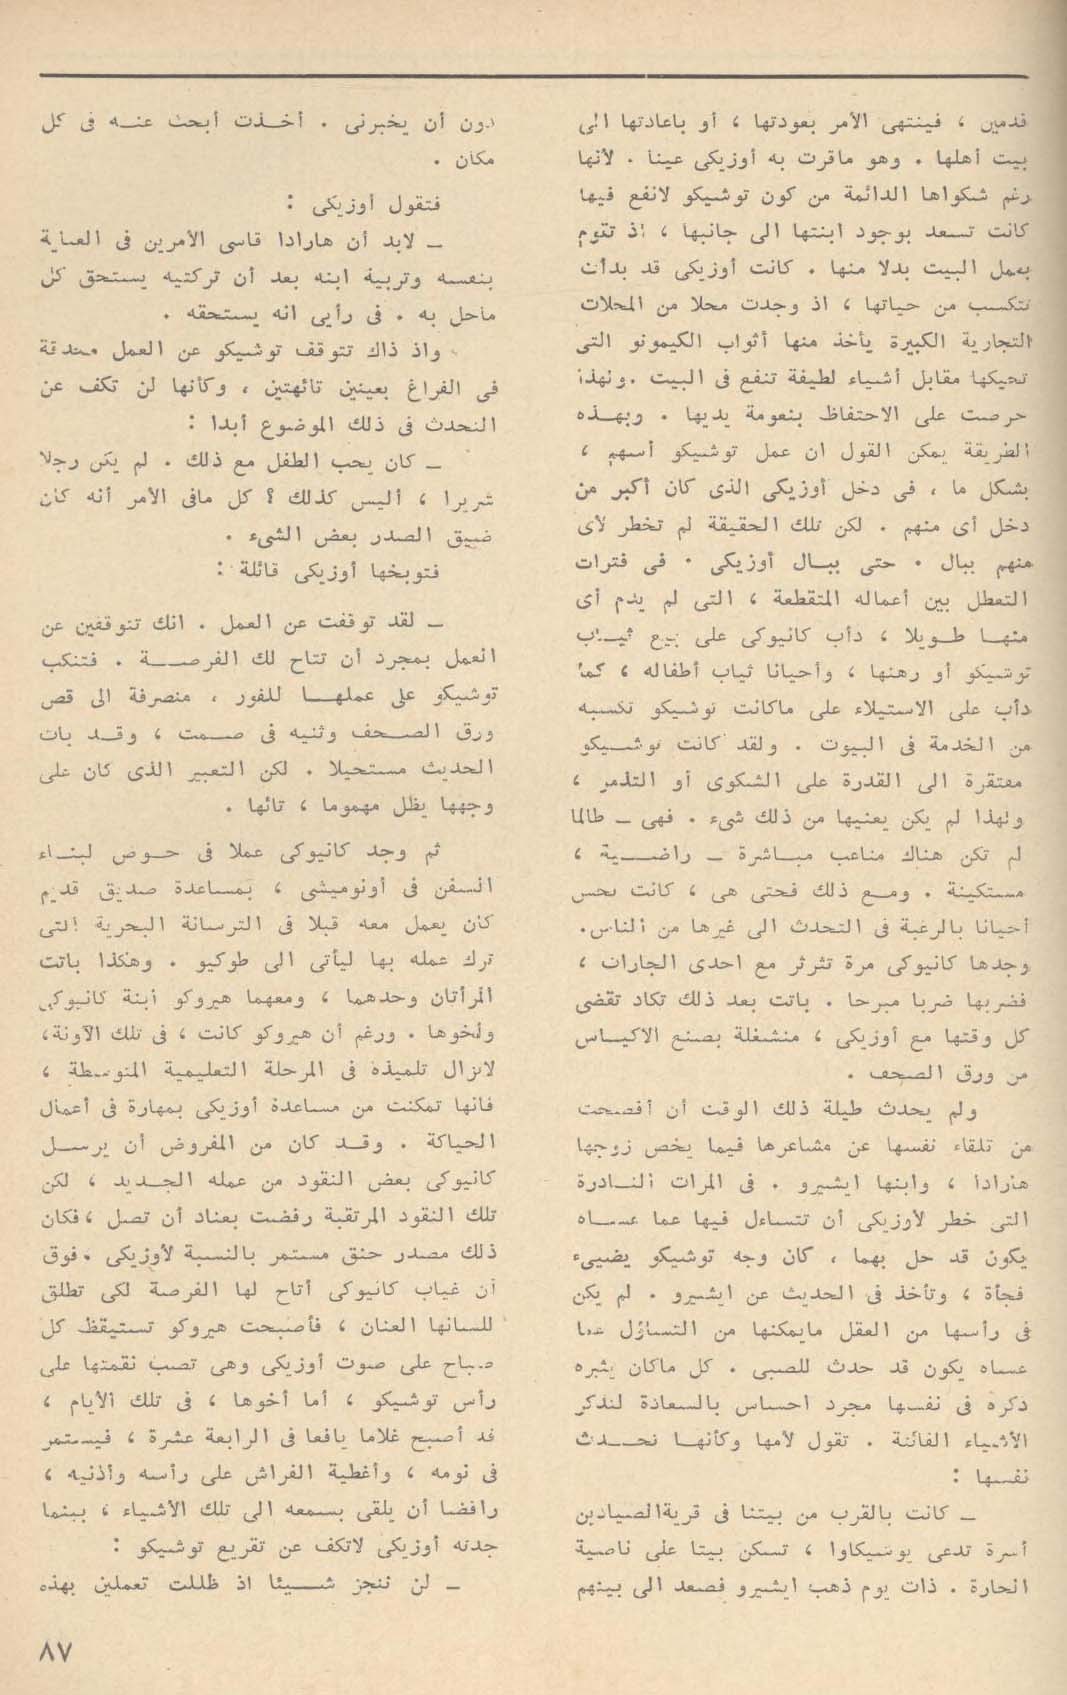 قدمين ، فينتهى الأمر بعودتها ، أو باعادتها الى
بيت أهلها . وهو ماقرت به أوزيكى عينا . لأنها
رغم شكواها الدائمة من كون توشيكو لانفع فيها
كانت تسعد بوجود ابنتها الى جانبها ، اذ تقوم
بعمل البيت بدلا منها . كانت أوزيكى قد بدأت
تتكسب من حياتها ، اذ وجدت محلا من المحلات
التجارية الكبيرة يأخذ منها أثواب الكيمونو التى
تحيكها مقابل أشياء لطيفة تنفع فى البيت .ولهذا
حرصت على الاحتفاظ بنعومة يديها . وبهـذه
الطريقة يمكن القول ان عمل توشيكو أسهم ،
بشكل ما ، فى دخل أوزيكى الذى كان أكبر من
دخل أى منهم . لكن تلك الحقيقة لم تخطر لأى
منهم ببال . حتى ببـال أوزيكى . فى فترات
التعطل بين أعماله المتقطعة ، التى لم يدم أى
منهـا طـويلا ، دأب كانيوكى على بيع ثيـاب
توشيكو أو رهنها ، وأحيانا ثياب أطفاله ، كما
دأب على الاستيلاء على ماكانت توشيكو تكسبه
من الخدمة فى البيوت . ولقد كانت توشـيكو
مفتقرة الى القدرة على الشكوى أو التذمر ،
ولهذا لم يكن يعنيها من ذلك شىء . فهى ـ طالما
لم تكن هناك متاعب مبـاشرة ـ راضـية ،
مستكينة . ومـع ذلك فحتى هى ، كانت تحس
أحيانا بالرغبة فى التحدث الى غيرها من الناس.
وجدها كانيوكى مرة تثرثر مع احدى الجارات ،
فضربها ضربا مبرحا . باتت بعد ذلك تكاد تقضى
كل وقتها مع أوزيكى ، منشغلة بصنع الاكيـاس
من ورق الصحف .
ولم يحدث طيلة ذلك الوقت أن أفصحت
من تلقاء نفسها عن مشاعرها فيما يخص زوجها
هارادا ، وابنها ايشيرو . فى المرات النـادرة
التى خطر لأوزيكى أن تتساءل فيها عما عسـاه
يكون قد حل بهما ، كان وجه توشيكو يضيىء
فجأة ، وتأخذ فى الحديث عن ايشيرو . لم يكن
فى رأسها من العقل مايمكنها من التساؤل عما
عساه يكون قد حدث للصبى . كل ماكان يثيره
ذكره فى نفسها مجرد احساس بالسعادة لتذكر
الأشياء الفائتة . تقول لأمها وكأنهـا تحـدث
نفسها :
ـ كانت بالقرب من بيتنا فى قريةالصيادين
أسرة تدعى يوشيكاوا ، تسكن بيتا على ناصية
الحارة . ذات يوم ذهب ايشيرو فصعد الى بيتهم
دون أن يخبرنى . أخـذت أبحث عنـه فى كل
مكان .
فتقول أوزيكى :
ـ لابد أن هارادا قاسى الأمرين فى العناية
بنفسه وتربية ابنه بعد أن تركتيه يستحق كل
ماحل به . فى رأيى انه يستحقه .
واذ ذاك تتوقف توشيكو عن العمل محدقة
فى الفراغ بعينين تائهتين ، وكأنها لن تكف عن
التحدث فى ذلك الموضوع أبدا :
ـ كان يحب الطفل مع ذلك . لم يكن رجلا
شريرا ، أليس كذلك ؟ كل مافى الأمر أنه كان
ضيق الصدر بعض الشىء .
فتوبخها أوزيكى قائلة :
ـ لقد توقفت عن العمل . انك تتوقفين عن
العمل بمجرد أن تتاح لك الفرصـة . فتنكب
توشيكو على عملهـا للفور ، منصرفة الى قص
ورق الصـحف وثنيه فى صـمت ، وقـد بات
الحديث مستحيلا . لكن التعبير الذى كان على
وجهها يظل مهموما ، تائها .
ثم وجد كانيوكى عملا فى حـوض لبنـاء
السفن فى أونوميشى ، بمساعدة صديق قديم
كان يعمل معه قبلا فى الترسانة البحرية التى
ترك عمله بها ليأتى الى طوكيو . وهكذا باتت
المرأتان وحدهما ، ومعهما هيروكو ابنة كانيوكى
وأخوها . ورغم أن هيروكو كانت ، فى تلك الآونة،
لاتزال تلميذه فى المرحلة التعليمية المتوسطة ،
فانها تمكنت من مساعدة أوزيكى بمهارة فى أعمال
الحياكة . وقـد كان من المفروض أن يرسـل
كانيوكى بعض النقود من عمله الجـديد ، لكن
تلك النقود المرتقبة رفضت بعناد أن تصل ، فكان
ذلك مصدر حنق مستمر بالنسبة لأوزيكى . فوق
أن غياب كانيوكى أتاح لها الفرصة لكى تطلق
للسانها العنان ، فأصبحت هيروكو تستيقظ كل
صباح على صوت أوزيكى وهى تصب نقمتها على
رأس توشيكو ، أما أخوها ، فى تلك الأيام ،
قد أصبح غلاما يافعا فى الرابعة عشرة ، فيستمر
فى نومه ، وأغطية الفراش على رأسه وأذنيه ،
رافضا أن يلقى بسمعه الى تلك الأشياء ، بينما
جدته أوزيكى لاتكف عن تقريع توشيكو :
ـ لن ننجز شـيئا اذ ظللت تعملين بهذه
٨٧